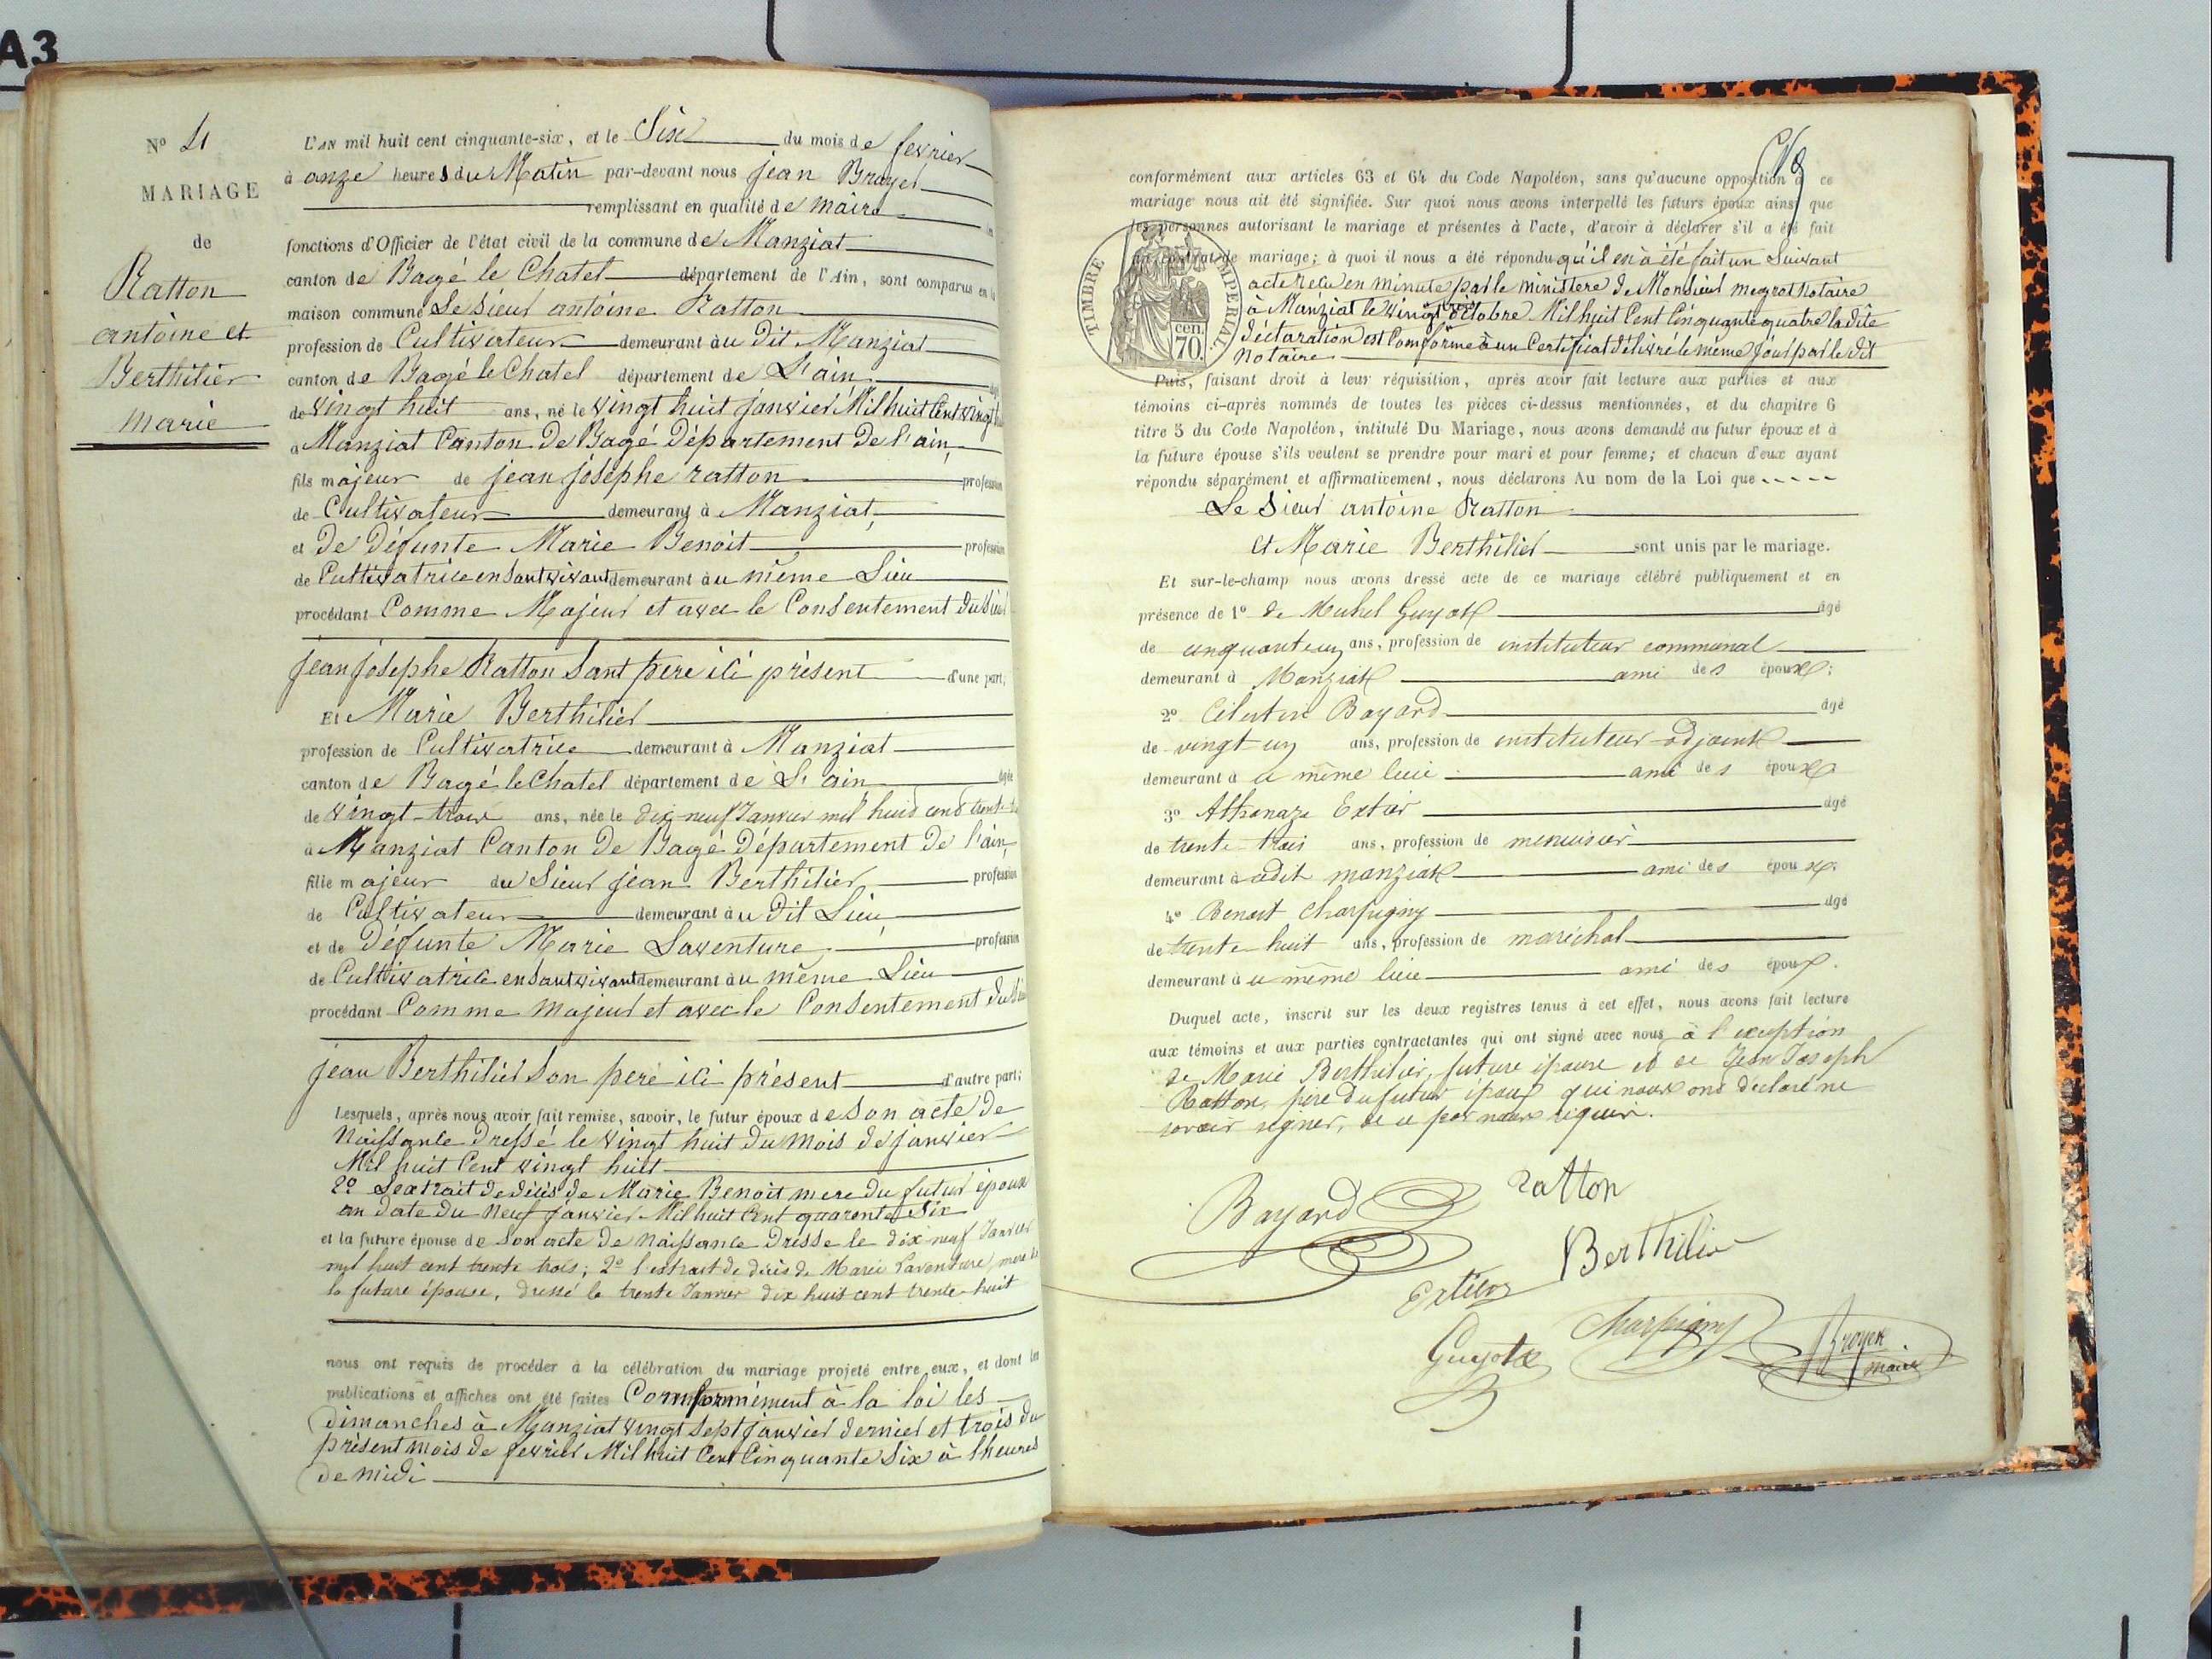 A3
N° 4
MARIAGE
de
Ratton
antoine et
Berthilier
marie
L'AN mil huit cent cinquante-six, et le Six du mois de fevrier
à onze heures du Matin par-devant nous jean Broyer
remplissant en qualité de maire les
fonctions d'Officier de l'état civil de la commune de Manziat
canton de Bagé le Chatel département de l'Ain, sont comparus en la
maison commune Le sieur antoine Ratton
profession de Cultivateur demeurant àu dit Manziat
canton de Bagé le Chatel département de L'ain
de vingt huit ans, né le vingt huit janvier Mil huit Cent vingt huit
à Manziat Canton De Bagé Département De l'ain,
fils majeur de jean josephe ratton profession
de Cultivateur demeurant à Manziat,
et De Défunte Marie Benoit profession
de Cultivatrice en sant vivant demeurant àu même Lieu
procédant Comme Majeur et avec le Consentement du sieur
jean josephe Ratton sant pere ici présent d'une part;
Et Marie Berthilier
profession de Cultivatrice demeurant à Manziat
canton de Bagé le Chatel département de L'ain âgée
de vingt-trois ans, née le dix-neuf Janvier mil huit cent trente
à Manziat Canton De Bagé Département De l'ain,
fille majeur du Sieur jean Berthilier profession
de Cultivateur demeurant àu Dit Lieu
et de Défunte Marie Laventure profession
de Cultivatrice en sant vivant demeurant àu même Lieu
procédant Comme majeur et avec le Consentement du sieur
jean Berthilier son pere ici présent d'autre part;
Lesquels, après nous avoir fait remise, savoir, le futur époux de son acte de
Naissance Dressé le vingt huit du mois de janvier
Mil huit Cent vingt huit
2° Lextrait de décès de Marie Benoit mere du futur époux
en date du Neuf janvier Mil huit Cent quarente Six
et la future épouse de son acte de naissance Dressé le dix-neuf Janvier
mil huit cent trente trois; 2° l'extrait de décès de Marie Laventure, mere de
la future épouse, dressé le trente Janvier dix huit cent trente-huit
nous ont requis de procéder à la célébration du mariage projeté entre eux, et dont les
publications et affiches ont été faites Comformément à la loi les
dimanches à Manziat vingt sept janvier dernier et trois du
présent mois de fevrier Mil huit Cent Cinquante Six à lheures
de midi
conformément aux articles 63 et 64 du Code Napoléon, sans qu'aucune opposition à ce
mariage nous ait été signifiée. Sur quoi nous avons interpellé les futurs époux ainsi que
les personnes autorisant le mariage et présentes à l'acte, d'avoir à déclarer s'il a été fait
un contrat de mariage; à quoi il nous a été répondu qu'il en à été fait un Suivant
acte recu en minute par le ministere de Monsieur megrot Notaire
à Manziat le vingt trois octobre Mil huit Cent Cinquante quatre ladite
déclaration est Comforme à un Certificat délivré le même jour par le dit
Notaire
TIMBRE IMPERIAL
cen.
70.
Puis, faisant droit à leur réquisition, après avoir fait lecture aux parties et aux
témoins ci-après nommés de toutes les pièces ci-dessus mentionnées, et du chapitre 6
titre 5 du Code Napoléon, intitulé Du Mariage, nous avons demandé au futur époux et à
la future épouse s'ils veulent se prendre pour mari et pour femme; et chacun d'eux ayant
répondu séparément et affirmativement, nous déclarons Au nom de la Loi que
Le Sieur antoine Ratton
et Marie Berthilier sont unis par le mariage.
Et sur-le-champ nous avons dressé acte de ce mariage célébré publiquement et en
présence de 1° de Michel Guyot âgé
de cinquante un ans, profession de instituteur communal
demeurant à Manziat ami des époux;
2° Célestin Bayard âgé
de vingt-un ans, profession de instituteur-adjoint
demeurant à u même lieu ami des époux
3° Athanaze Extier âgé
de trente trois ans, profession de menuisier
demeurant à udit manziat ami des époux.
4° Benoit Charpigny âgé
de trente huit ans, profession de maréchal
demeurant à u même lieu ami des époux.
Duquel acte, inscrit sur les deux registres tenus à cet effet, nous avons fait lecture
aux témoins et aux parties contractantes qui ont signé avec nous à l'exception
de Marie Berthilier, future épouse et de Jean Joseph
Ratton, père du futur époux qui nous ont déclaré ne
savoir signer, de ce par nous requis.
Bayard
ratton
Berthilier
Extier
Charpigny
Guyot
Broyer
maire